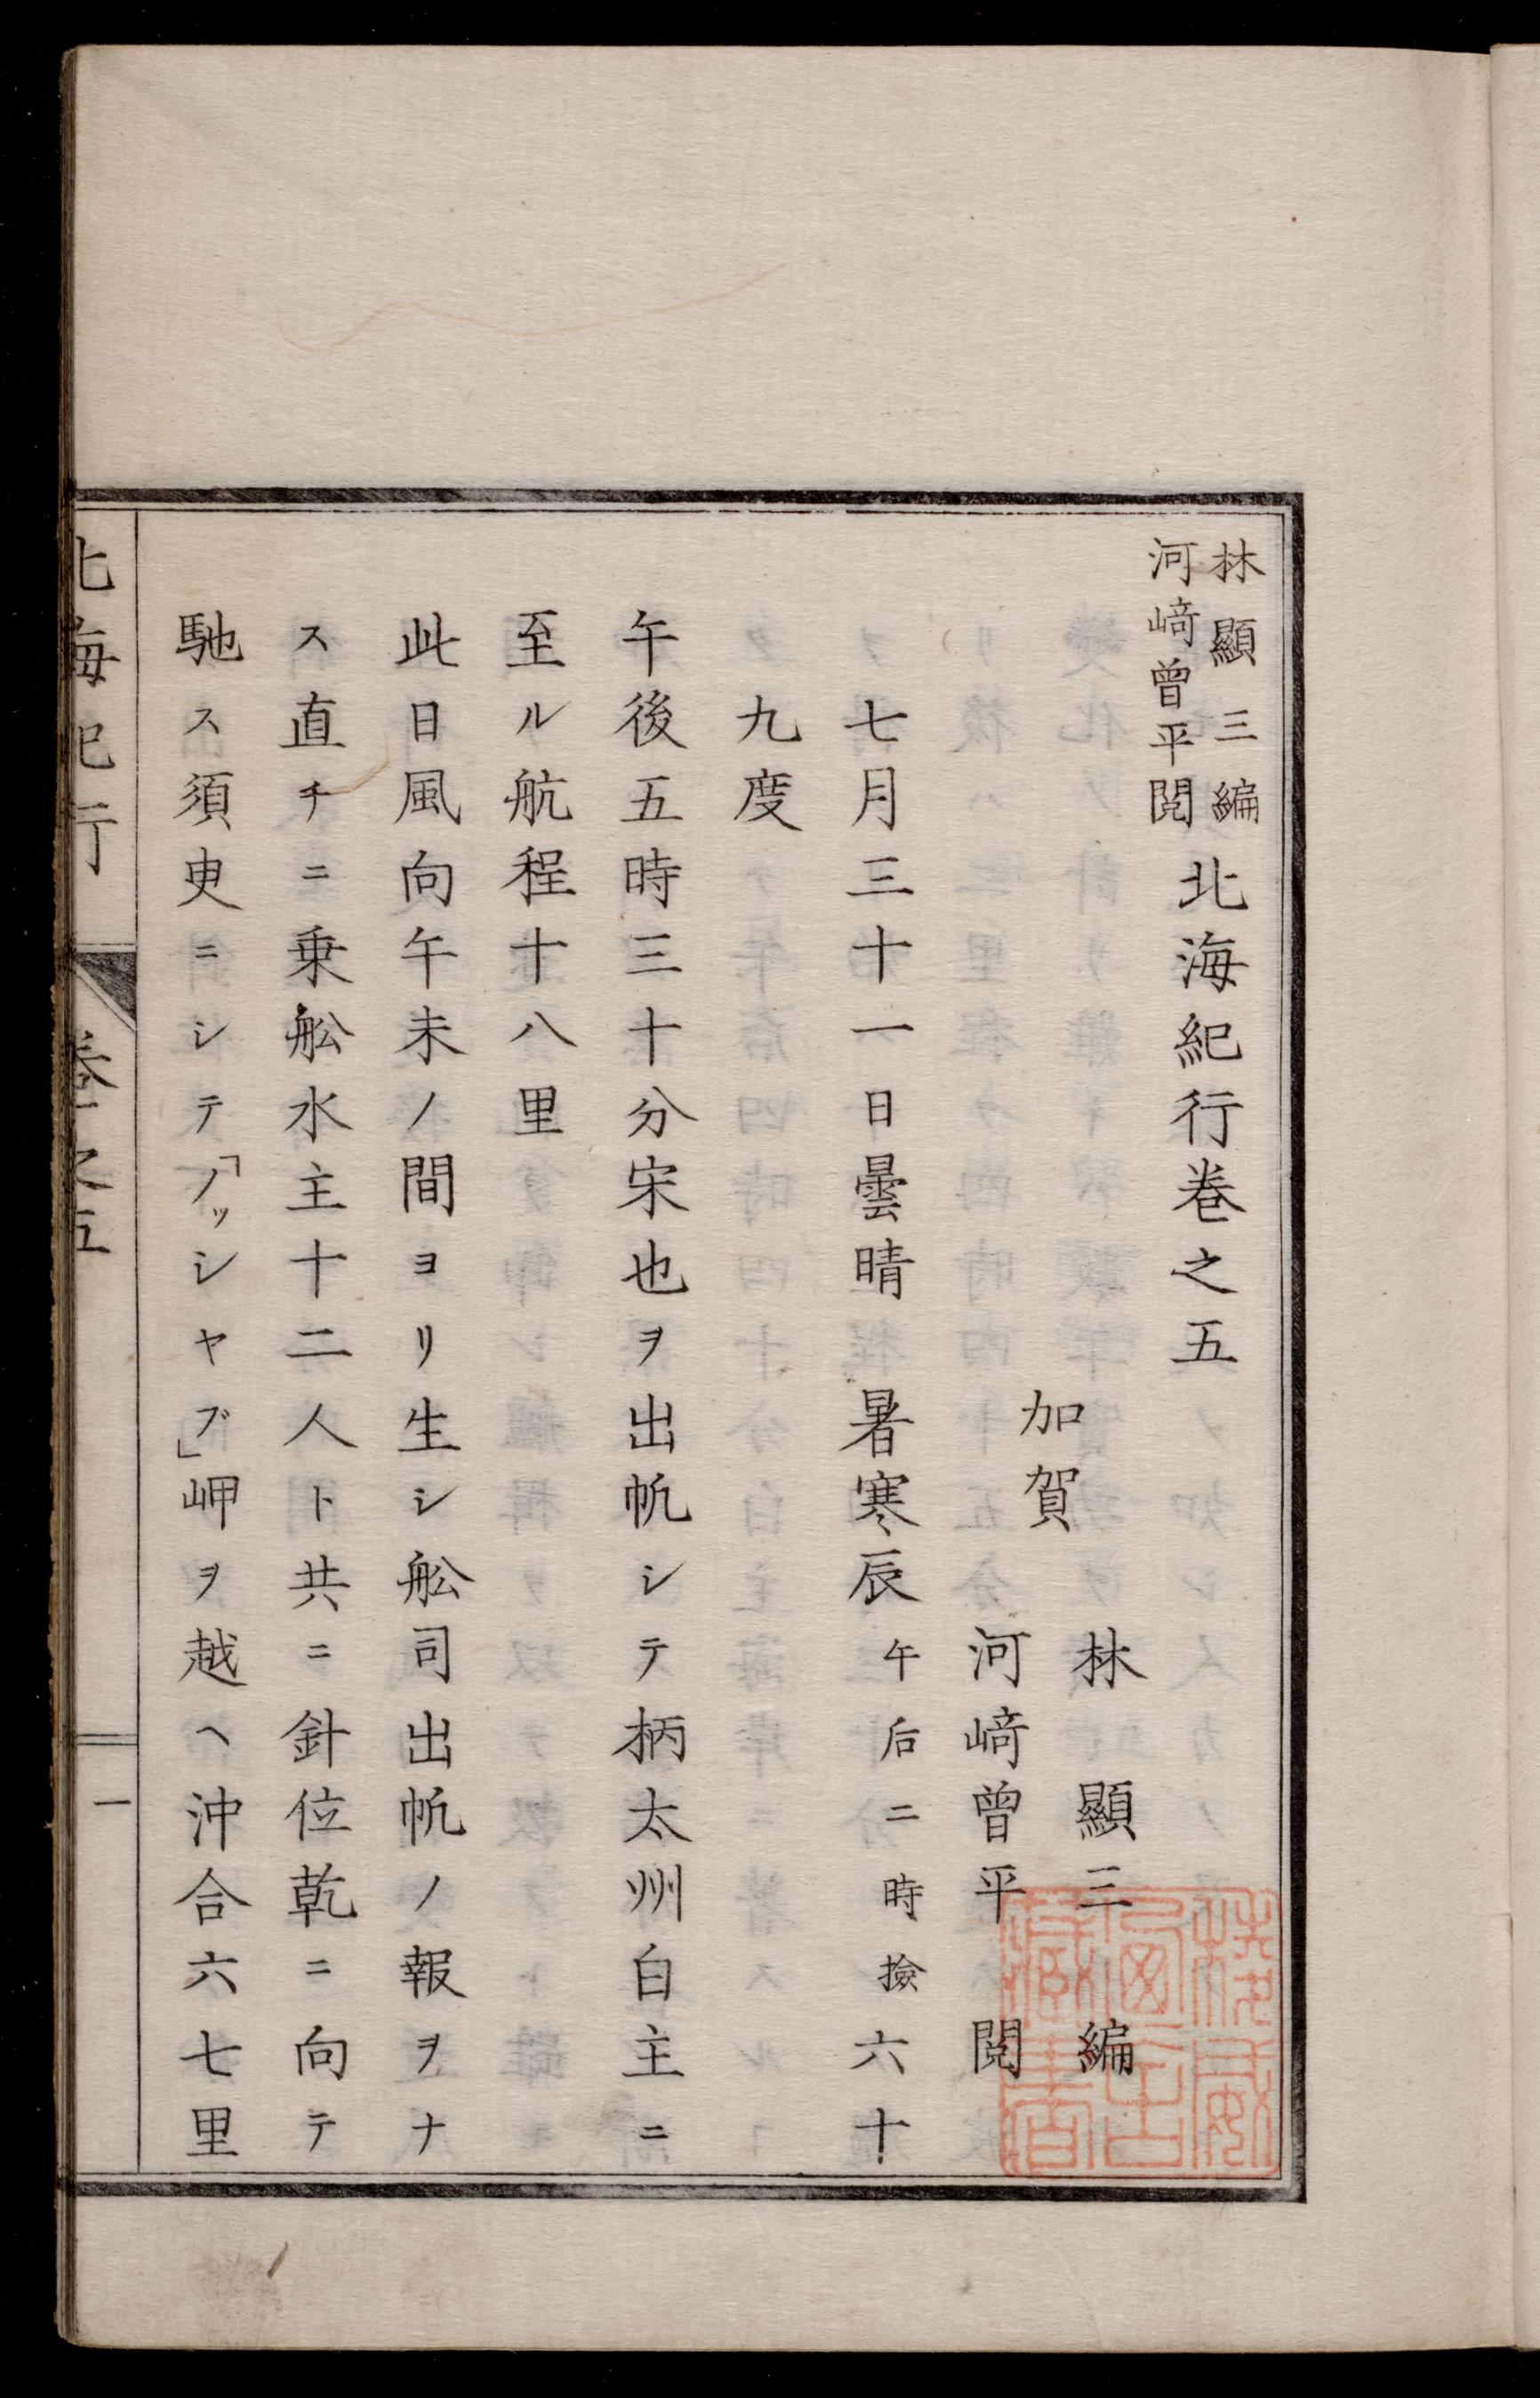 林顯三編
河﨑曾平閱
北海紀行卷之五
加賀
林顯三編
河﨑曾平閱
七月三十一日曇晴 暑寒辰午后二時撿六十
九度
午後五時三十分宋也ヲ出帆シテ柄太州白主ニ
至ル航程十八里
此日風向午未ノ間ヨリ生シ舩司出帆ノ報ヲナ
ス直チニ乗舩水主十二人ト共ニ針位乾ニ向テ
馳ス須臾ニシテ「ノッシヤブ」岬ヲ越ヘ沖合六七里
北海紀行
卷之五
一